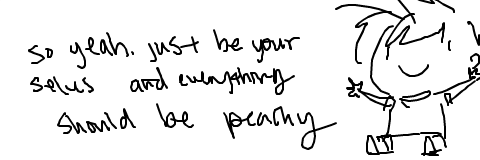 so yeah. just be your
selvs and everything
should be peachy